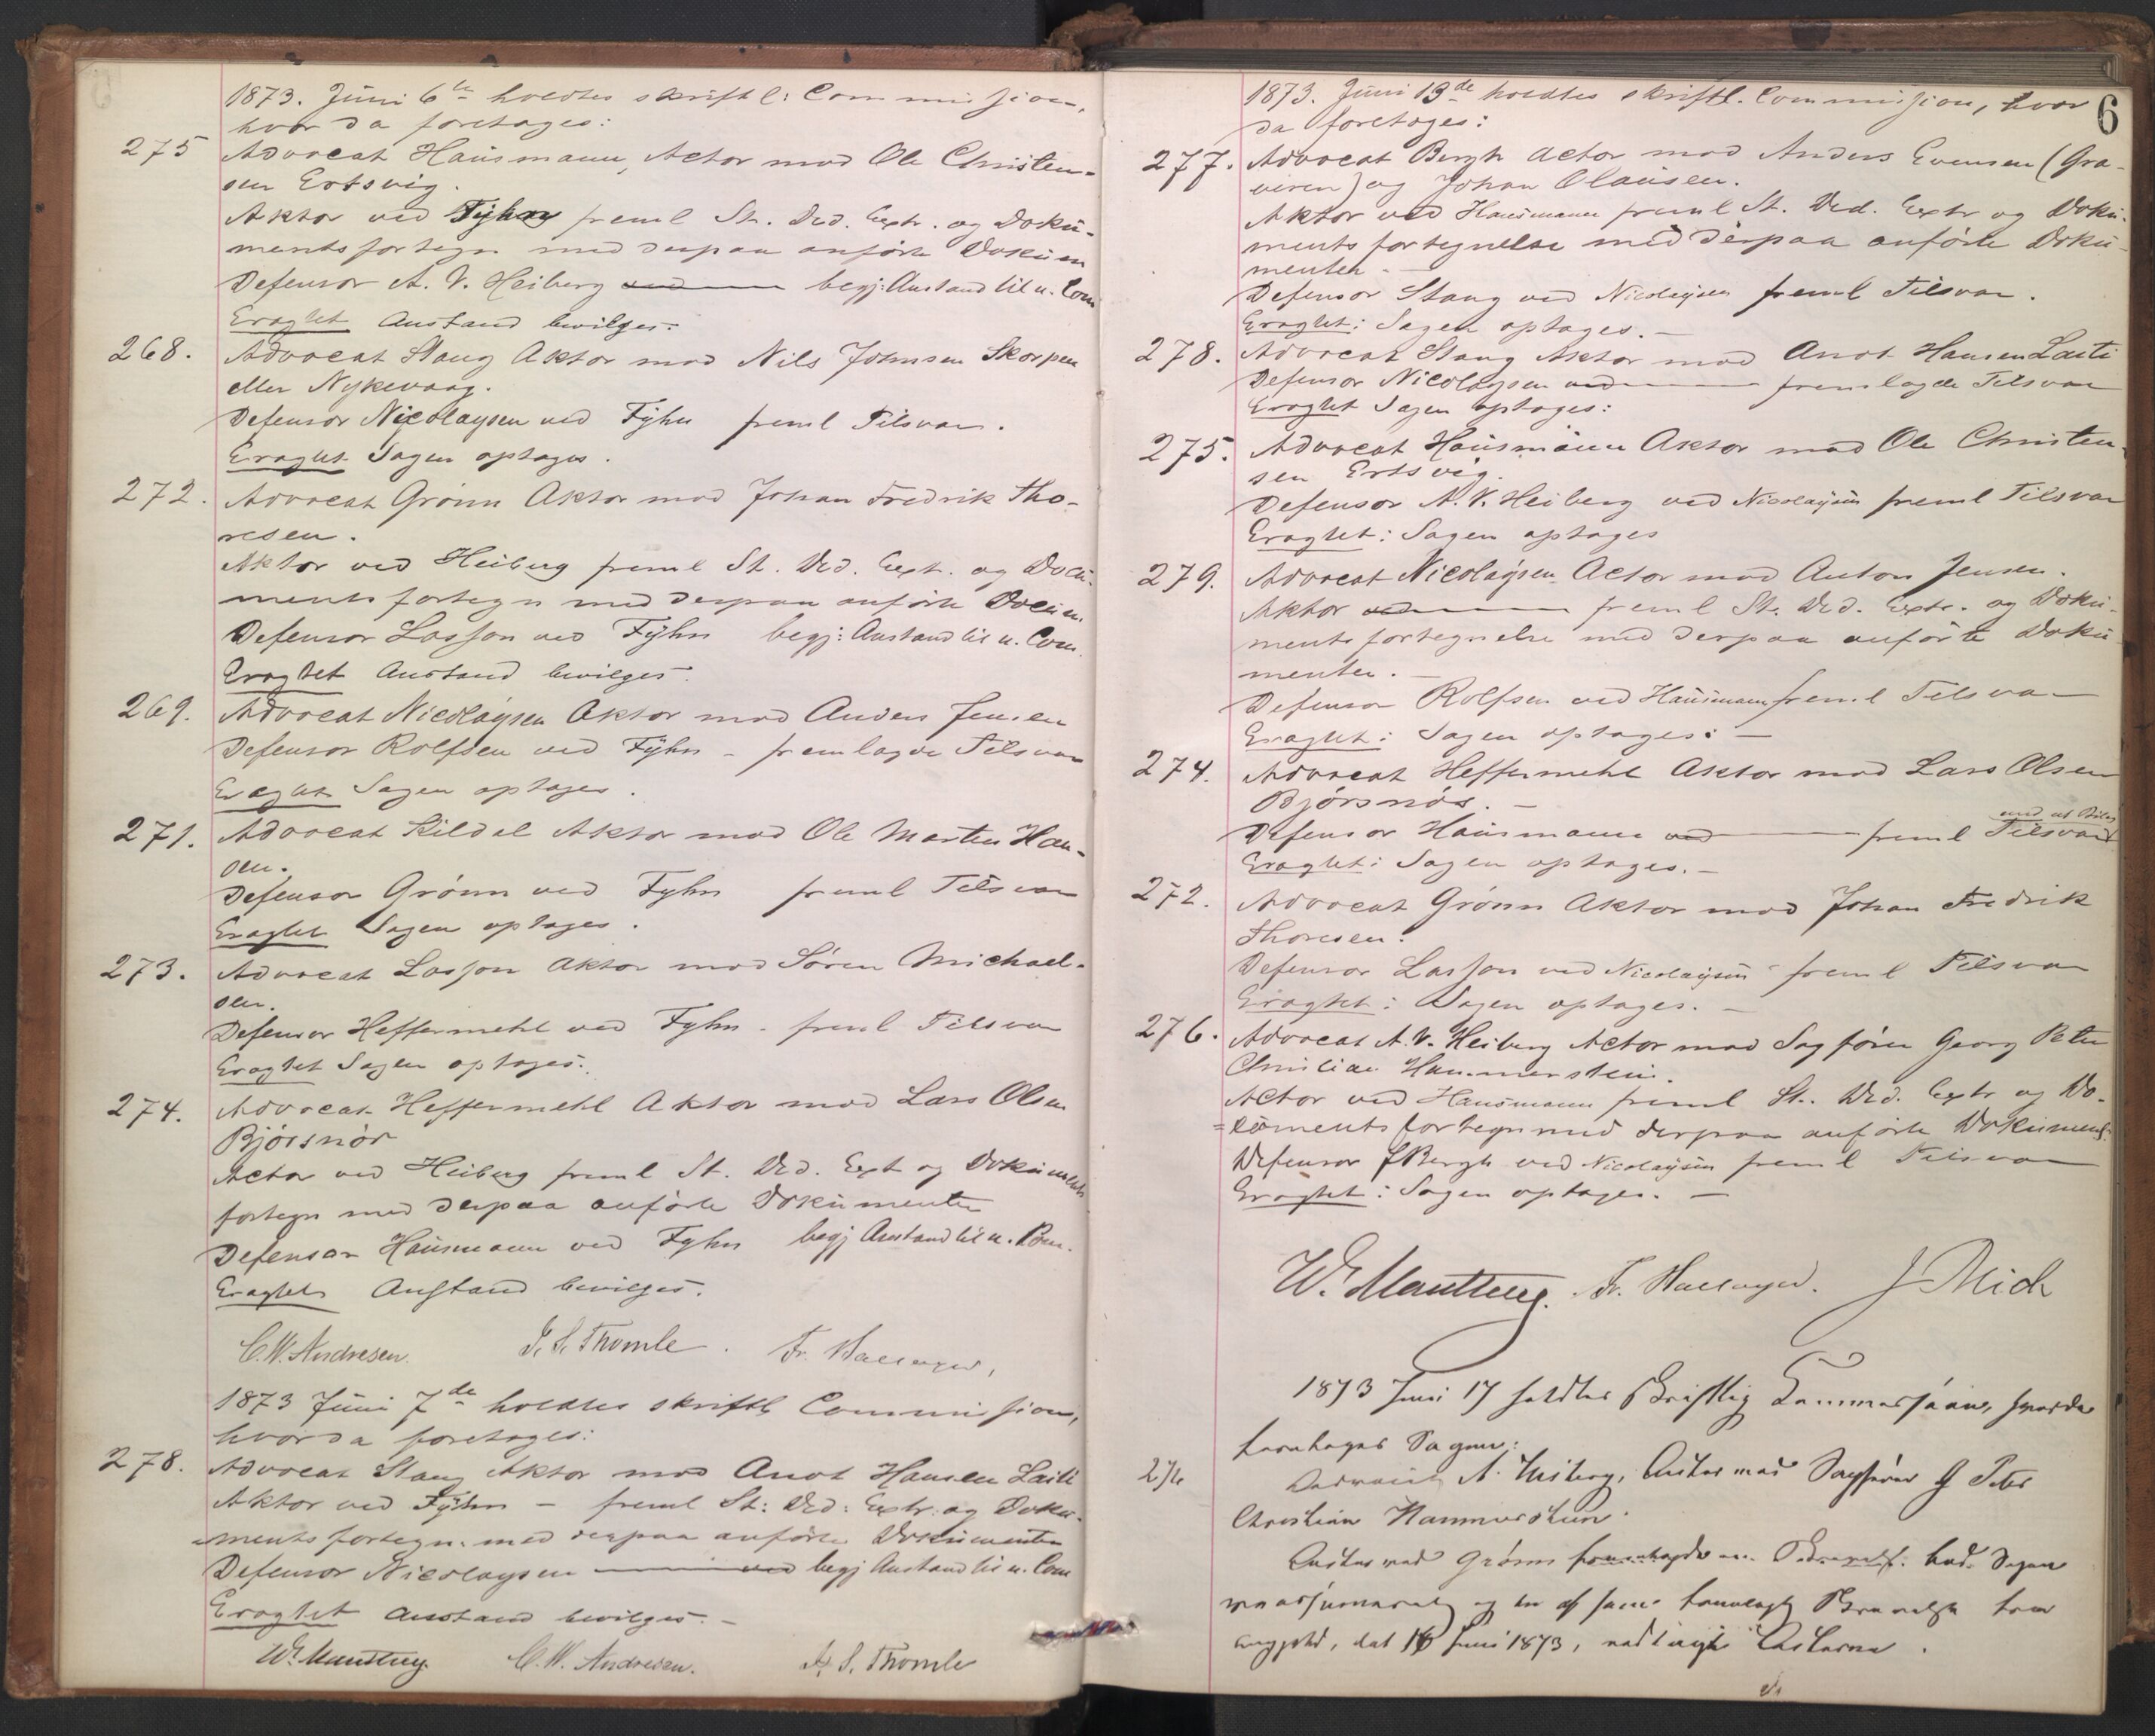 1873. Juni 6te holdtes skriftl: Commission,
hvor da foretoges:
275 Advocat Hausmann, Actor mod Ole Christen-
sen Ertsvig.
Aktor ved Fyhn freml St. Ved. Extr. og Doku-
mentsfortegn med derpaa anførte Dokum
Defensor A. V. Heiberg ved begj: Anstand til n. Com
Eragtet Anstand bevilges.
268. Advocat Stang Aktor mod Nils Johnsen Skorpen
eller Nykevaag.
Defensor Nicolaysen ved Fyhn freml Tilsvar.
Eragtet Sagen optages.
272. Advocat Grönn Aktor mod Johan Fredrik Tho-
resen.
Aktor ved Heiberg freml St. Ved. Extr. og Docu-
mentsfortegn med derpaa anførte Docum.
Defensor Lasson ved Fyhn begj: Anstand til n. Com.
Eragtet Anstand bevilges.
269. Advocat Nicolaysen Aktor mod Anders Jensen
Defensor Rolfsen ved Fyhn - fremlagde Tilsvar
Eragtet Sagen optages.
271. Advocat Kildal Aktor mod Ole Marten Han-
sen.
Defensor Grönn ved Fyhn freml Tilsvar
Eragtet Sagen optages.
273. Advocat Lasson Aktor mod Sören Michael-
sen.
Defensor Heffermehl ved Fyhn - freml Tilsvar
Eragtet Sagen optages.
274. Advocat Heffermehl Aktor mod Lars Olsen
Björsnös
Actor ved Heiberg freml St. Ved. Ext og Dokuments
fortegn med derpaa anførte Dokumenter
Defensor Hausmann ved Fyhn begj Anstand til n. Com.
Eragtet Anstand bevilges.
C.W. Andresen. J. S. Thomle. Fr. Hallager,
1873 Juni 7de holdtes skriftl Commission,
hvor da foretoges:
278. Advocat Stang Aktor mod Anot Hansen Laiti
Aktor ved Fyhn - freml St: Ved: Extr: og Doku-
mentsfortegn. med derpaa anførte Dokumenter
Defensor Nicolaysen ved begj Anstand til n. Com
Eragtet Anstand bevilges. -
C. W. Andresen. J. S. Thomle
6
1873. Juni 13de holdtes skriftl. Commission, hvor
da foretoges:
277. Advocat Bergh Actor mod Anders Evensen (Gra-
veren) og Johan Olausen.
Aktor ved Hausmann freml St. Ved. Extr og Doku-
mentsfortegnelse med derpaa anførte Doku-
menter. -
Defensor Stang ved Nicolaysen freml Tilsvar.
Eragtet: Sagen optages. -
278. Advocat Stang Aktor mod Anot Hansen Laiti
Defensor Nicolaysen ved fremlagde Tilsvar
Eragtet Sagen optages:
275. Advocat Hausmann Aktor mod Ole Christen-
sen Ertsvig.
Defensor A. V. Heiberg ved Nicolaysen freml Tilsvar
Eragtet: Sagen optages
279. Advocat Nicolaysen Actor mod Anton Jensen.
Aktor ved freml St. Ved. Extr. og Doku-
mentsfortegnelse med derpaa anførte Doku-
menter. -
Defensor Rolfsen ved Hausmann freml Tilsvar
Eragtet: Sagen optages: -
274. Advocat Heffermehl Aktor mod Lars Olsen
Björsnös. -
med et Bilag
Defensor Hausmann ved freml Tilsvar
Eragtet: Sagen optages. -
272. Advocat Grönn Aktor mod Johan Fredrik
Thoresen.
Defensor Lasson ved Nicolaysen freml Tilsvar
Eragtet: Sagen optages. -
276. Advocat A. V. Heiberg Actor mod Sagförer Georg Peter
Christian Hammerstein.
Actor ved Hausmann freml St. Ved. Extr og Do-
kumentsfortegn med derpaa anførte Dokument
Defensor Bergh ved Nicolaysen freml Tilsvar
Eragtet: Sagen optages. -
Fr. Hallager.
1873 Juni 17 holdtes Skriftlig Commission, hvorda
foretoges Sagen:
276 Advocat A. Heiberg, Actor mod Sagförer G Peter
Christian Hammerstein.
Actor ved Grönn
dat 16 Juni 1873,